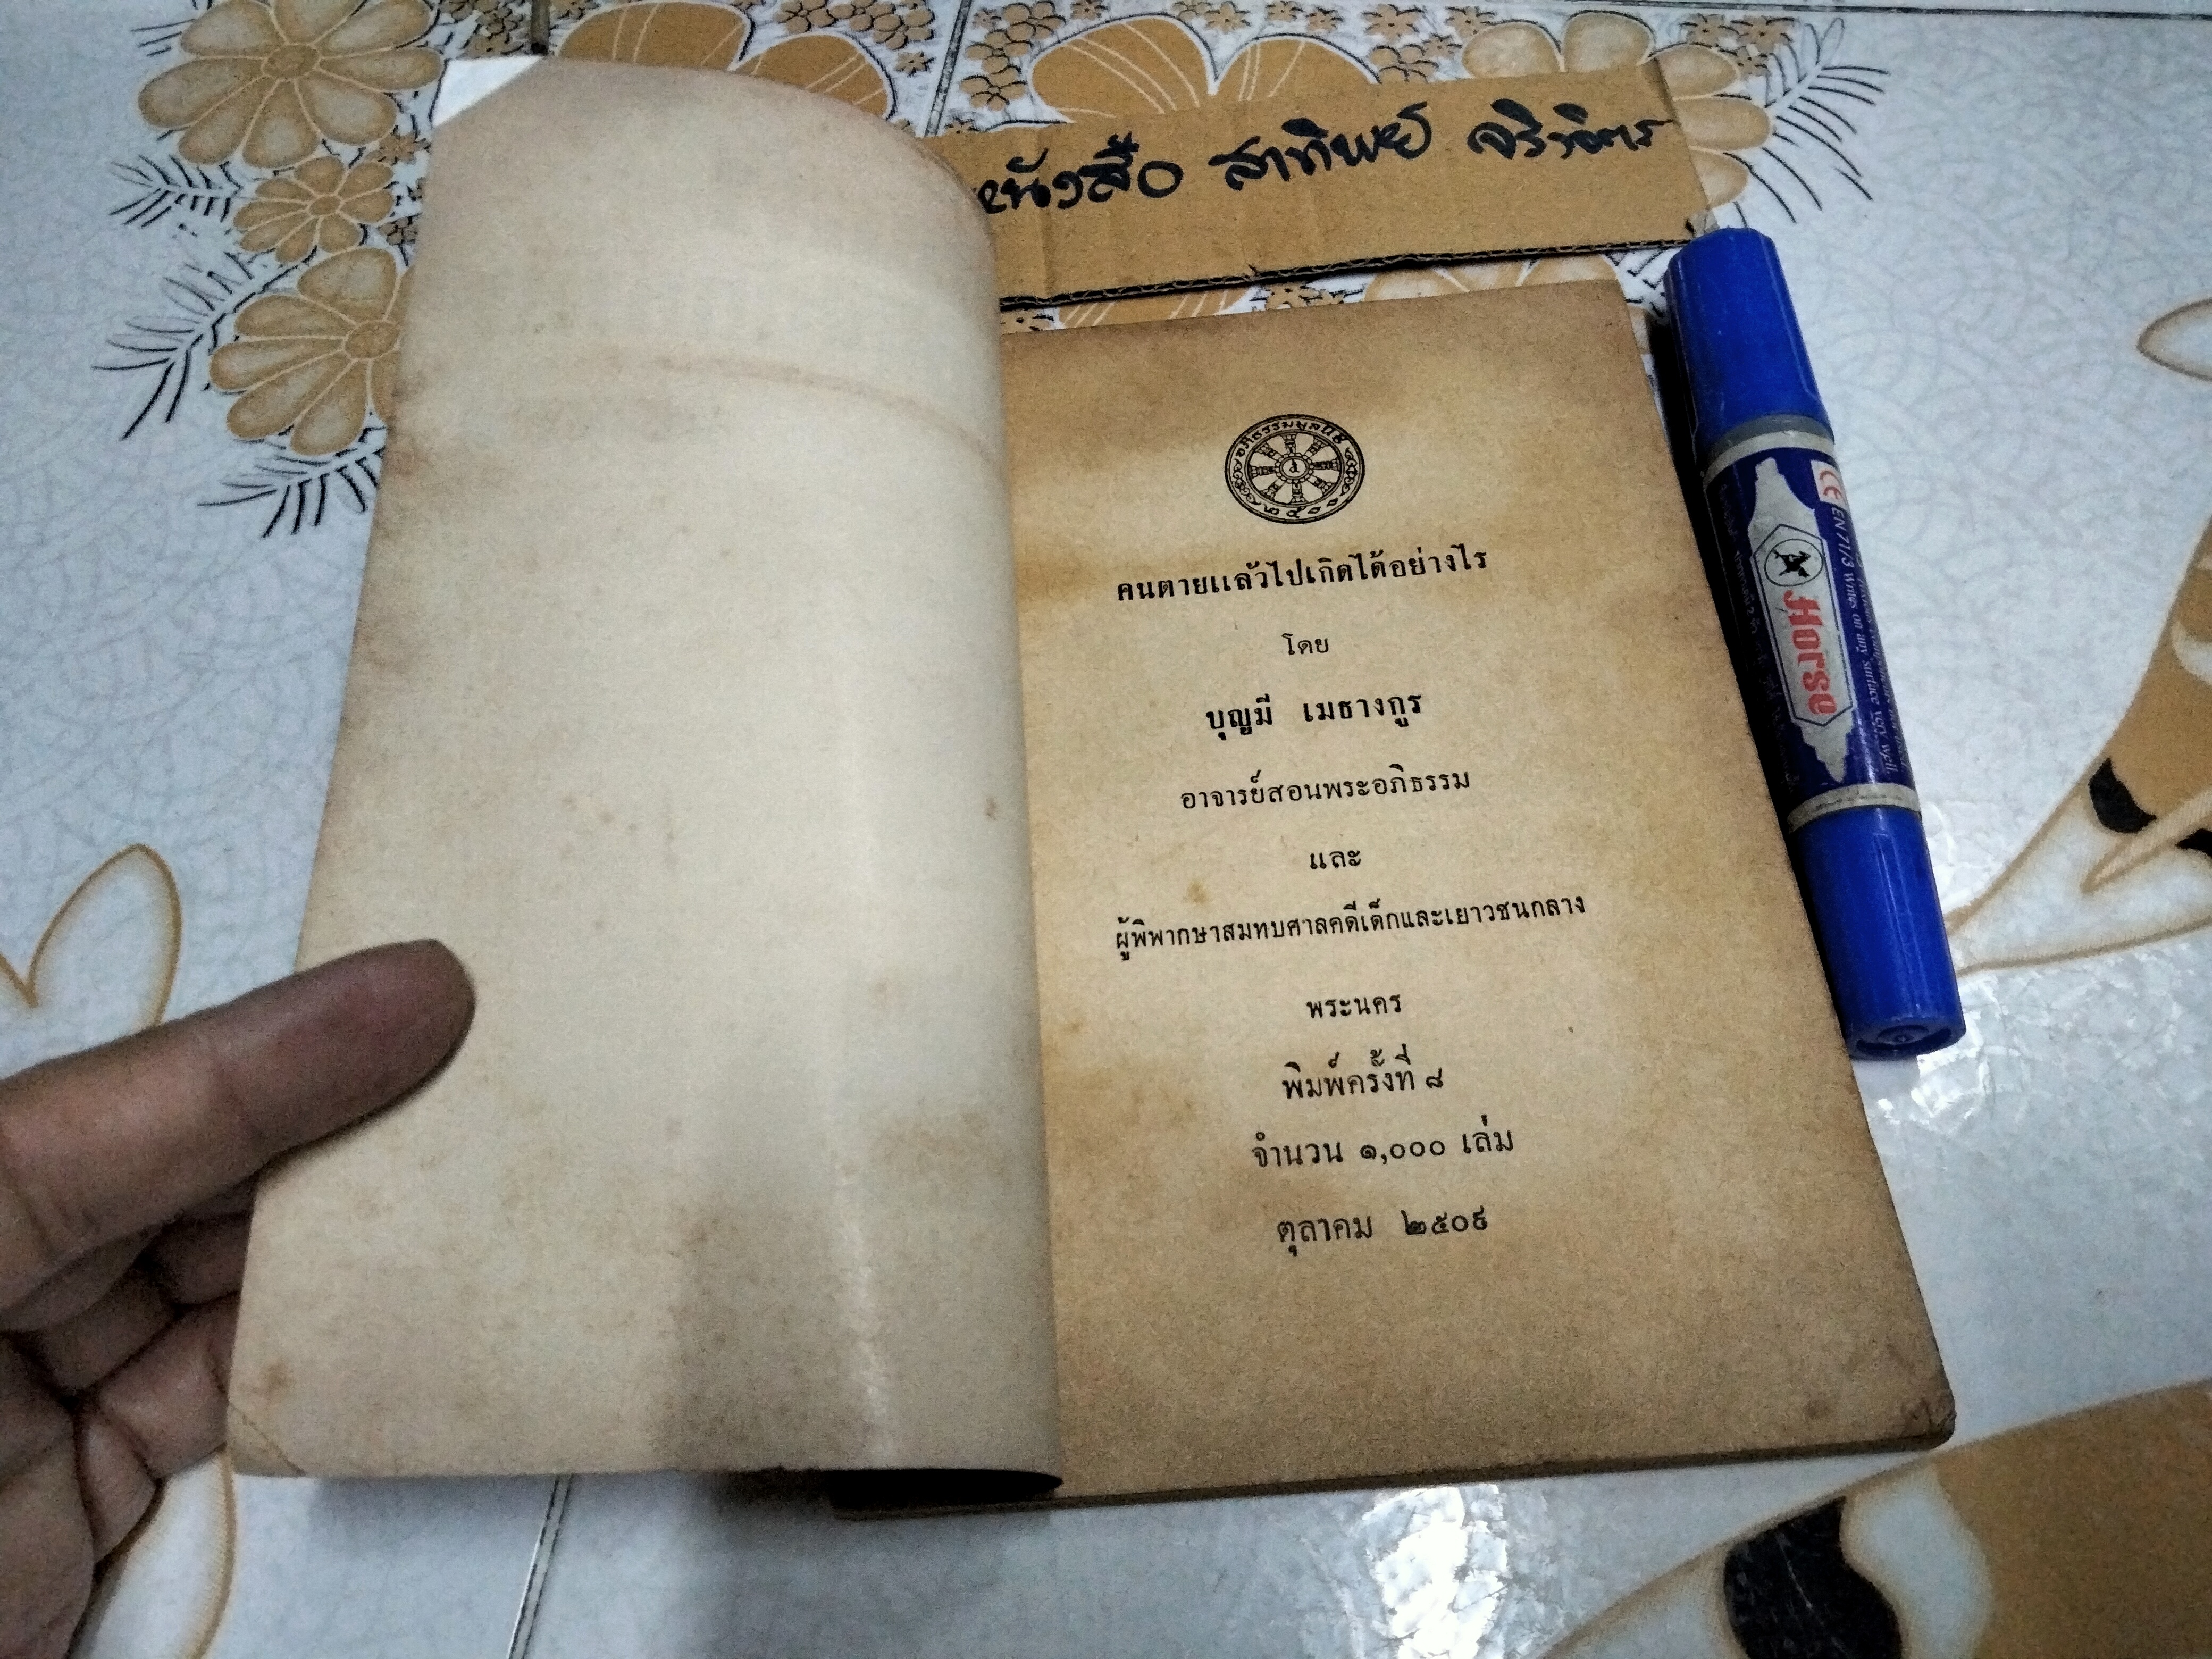 หนังสือ สาทิพย์ จริงจิตร
อภิธรรมมูลนิธิ
๒๕๐๐
คนตายแล้วไปเกิดได้อย่างไร
โดย
บุญมี เมธางกูร
อาจารย์สอนพระอภิธรรม
และ
ผู้พิพากษาสมทบศาลคดีเด็กและเยาวชนกลาง
พระนคร
พิมพ์ครั้งที่ ๘
จำนวน ๑,๐๐๐ เล่ม
ตุลาคม ๒๕๐๙
CE EN 71/3 Writes on any surface very well.
Horse